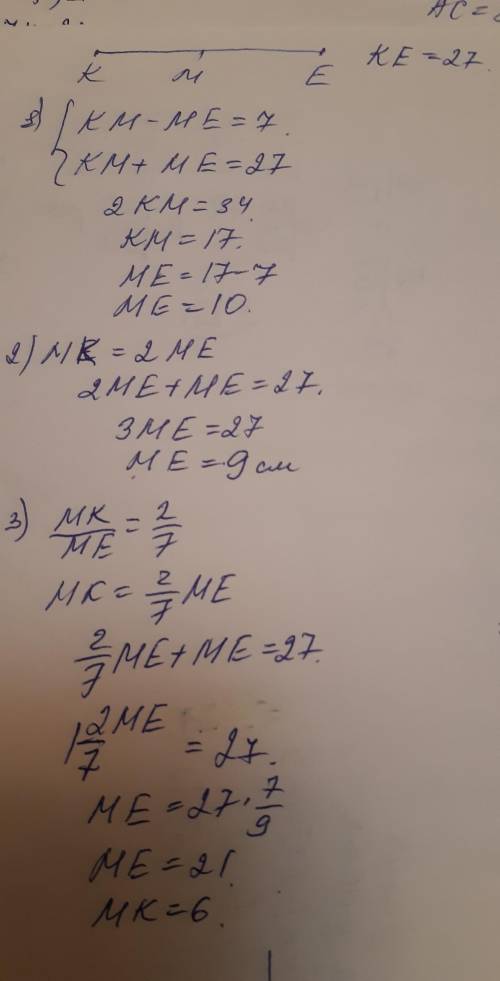 AC =
K M E KE = 27.
1) { KM - ME = 7.
KM + ME = 27
2 KM = 34.
KM = 17.
ME = 17-7
ME = 10.
2) MK = 2 ME
2ME + ME = 27.
3ME = 27
ME = 9 см
3) MK/ME = 2/7
MK = 2/7 ME
2/7 ME + ME = 27.
1 2/7 ME = 27.
ME = 27 · 7/9
ME = 21.
MK = 6.